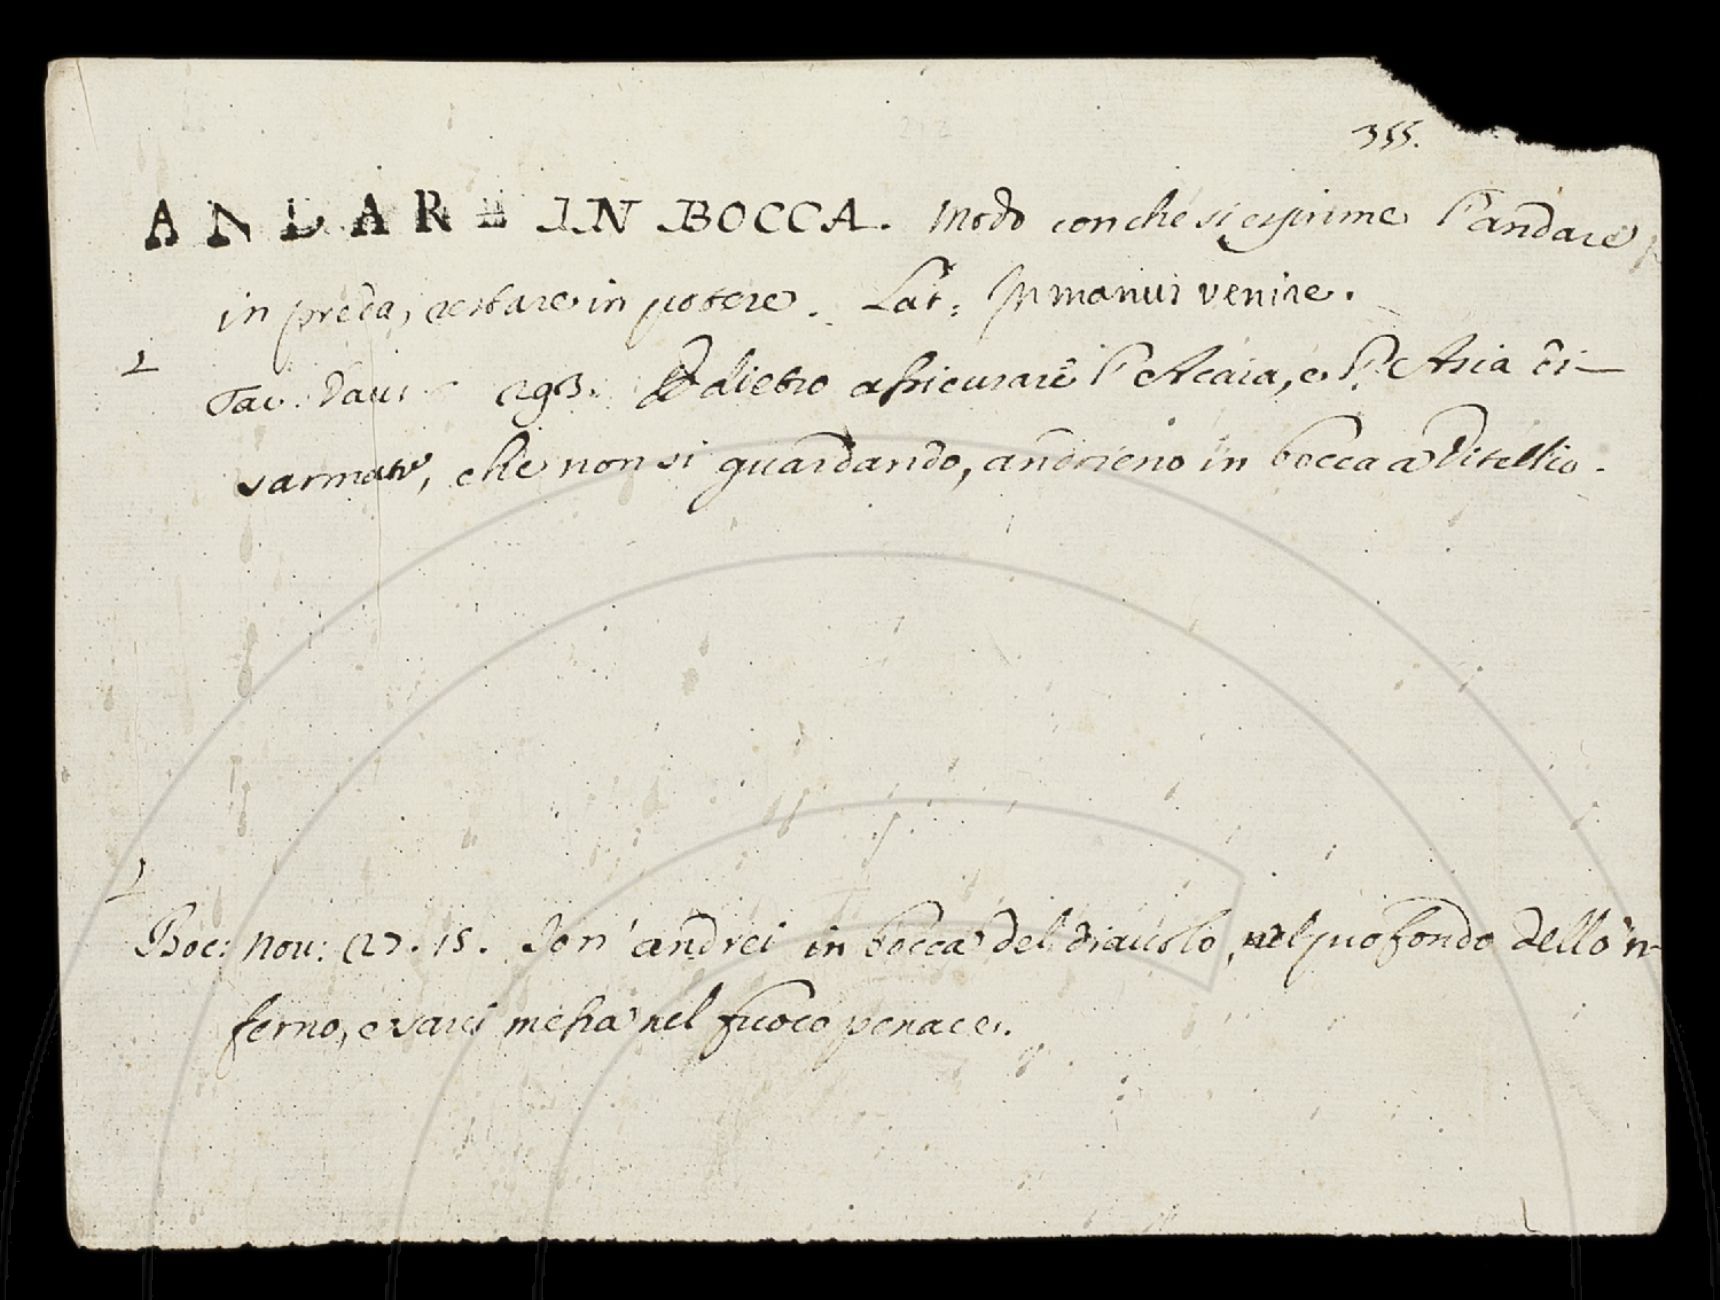 355.
ANDARE IN BOCCA. Modo con che si esprime l'andare
in preda, restare in potere. Lat: In manus venire.
2
Tac. Dav. 293. dietro assicurare l'Acaia, e l'Asia di-
sarmate, che non si guardando, andrieno in bocca a Vitellio.
1
Boc: nov: 27. 15. Io n'andrei in bocca del diavolo, nel profondo dello 'n-
ferno, e sarei messa nel fuoco penace.